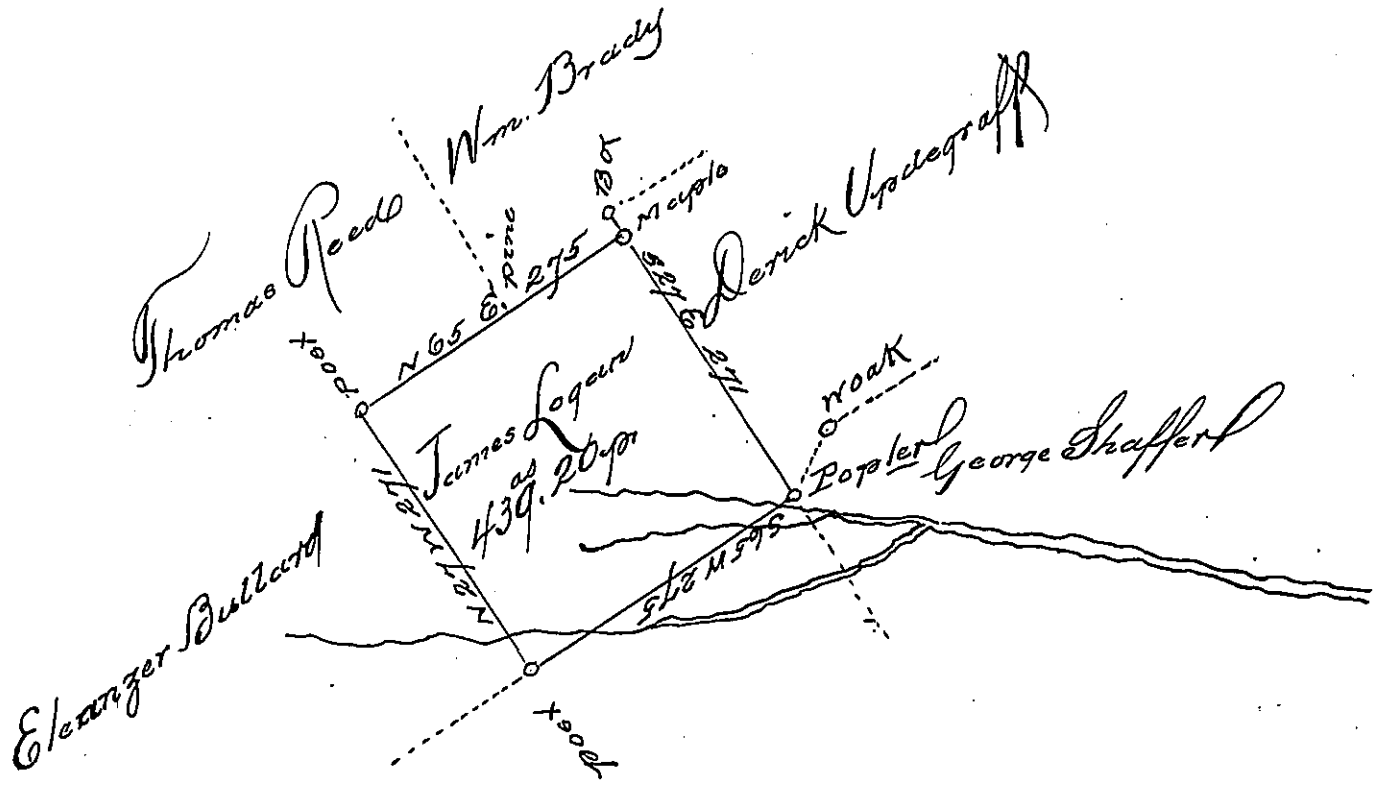 Wm. Brady
Thomas Reed
Derick Updegraff
Bo
Maple
pine
N 65 E. 275
S27 E 271
post
James Logan
as
439. 20 pr
woak
Popler
George Shaffer
N 27 W 271
S65W 275
Eleanzer Bullard
post